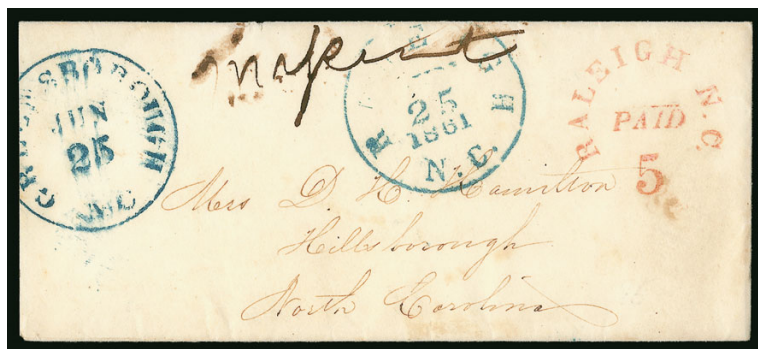 GREENSBOROUGH
JUN
25
N.C.
25
1861
N.C.
RALEIGH N.C.
PAID
5
Mrs D. H. Hamilton
Hillsborough
North Carolina